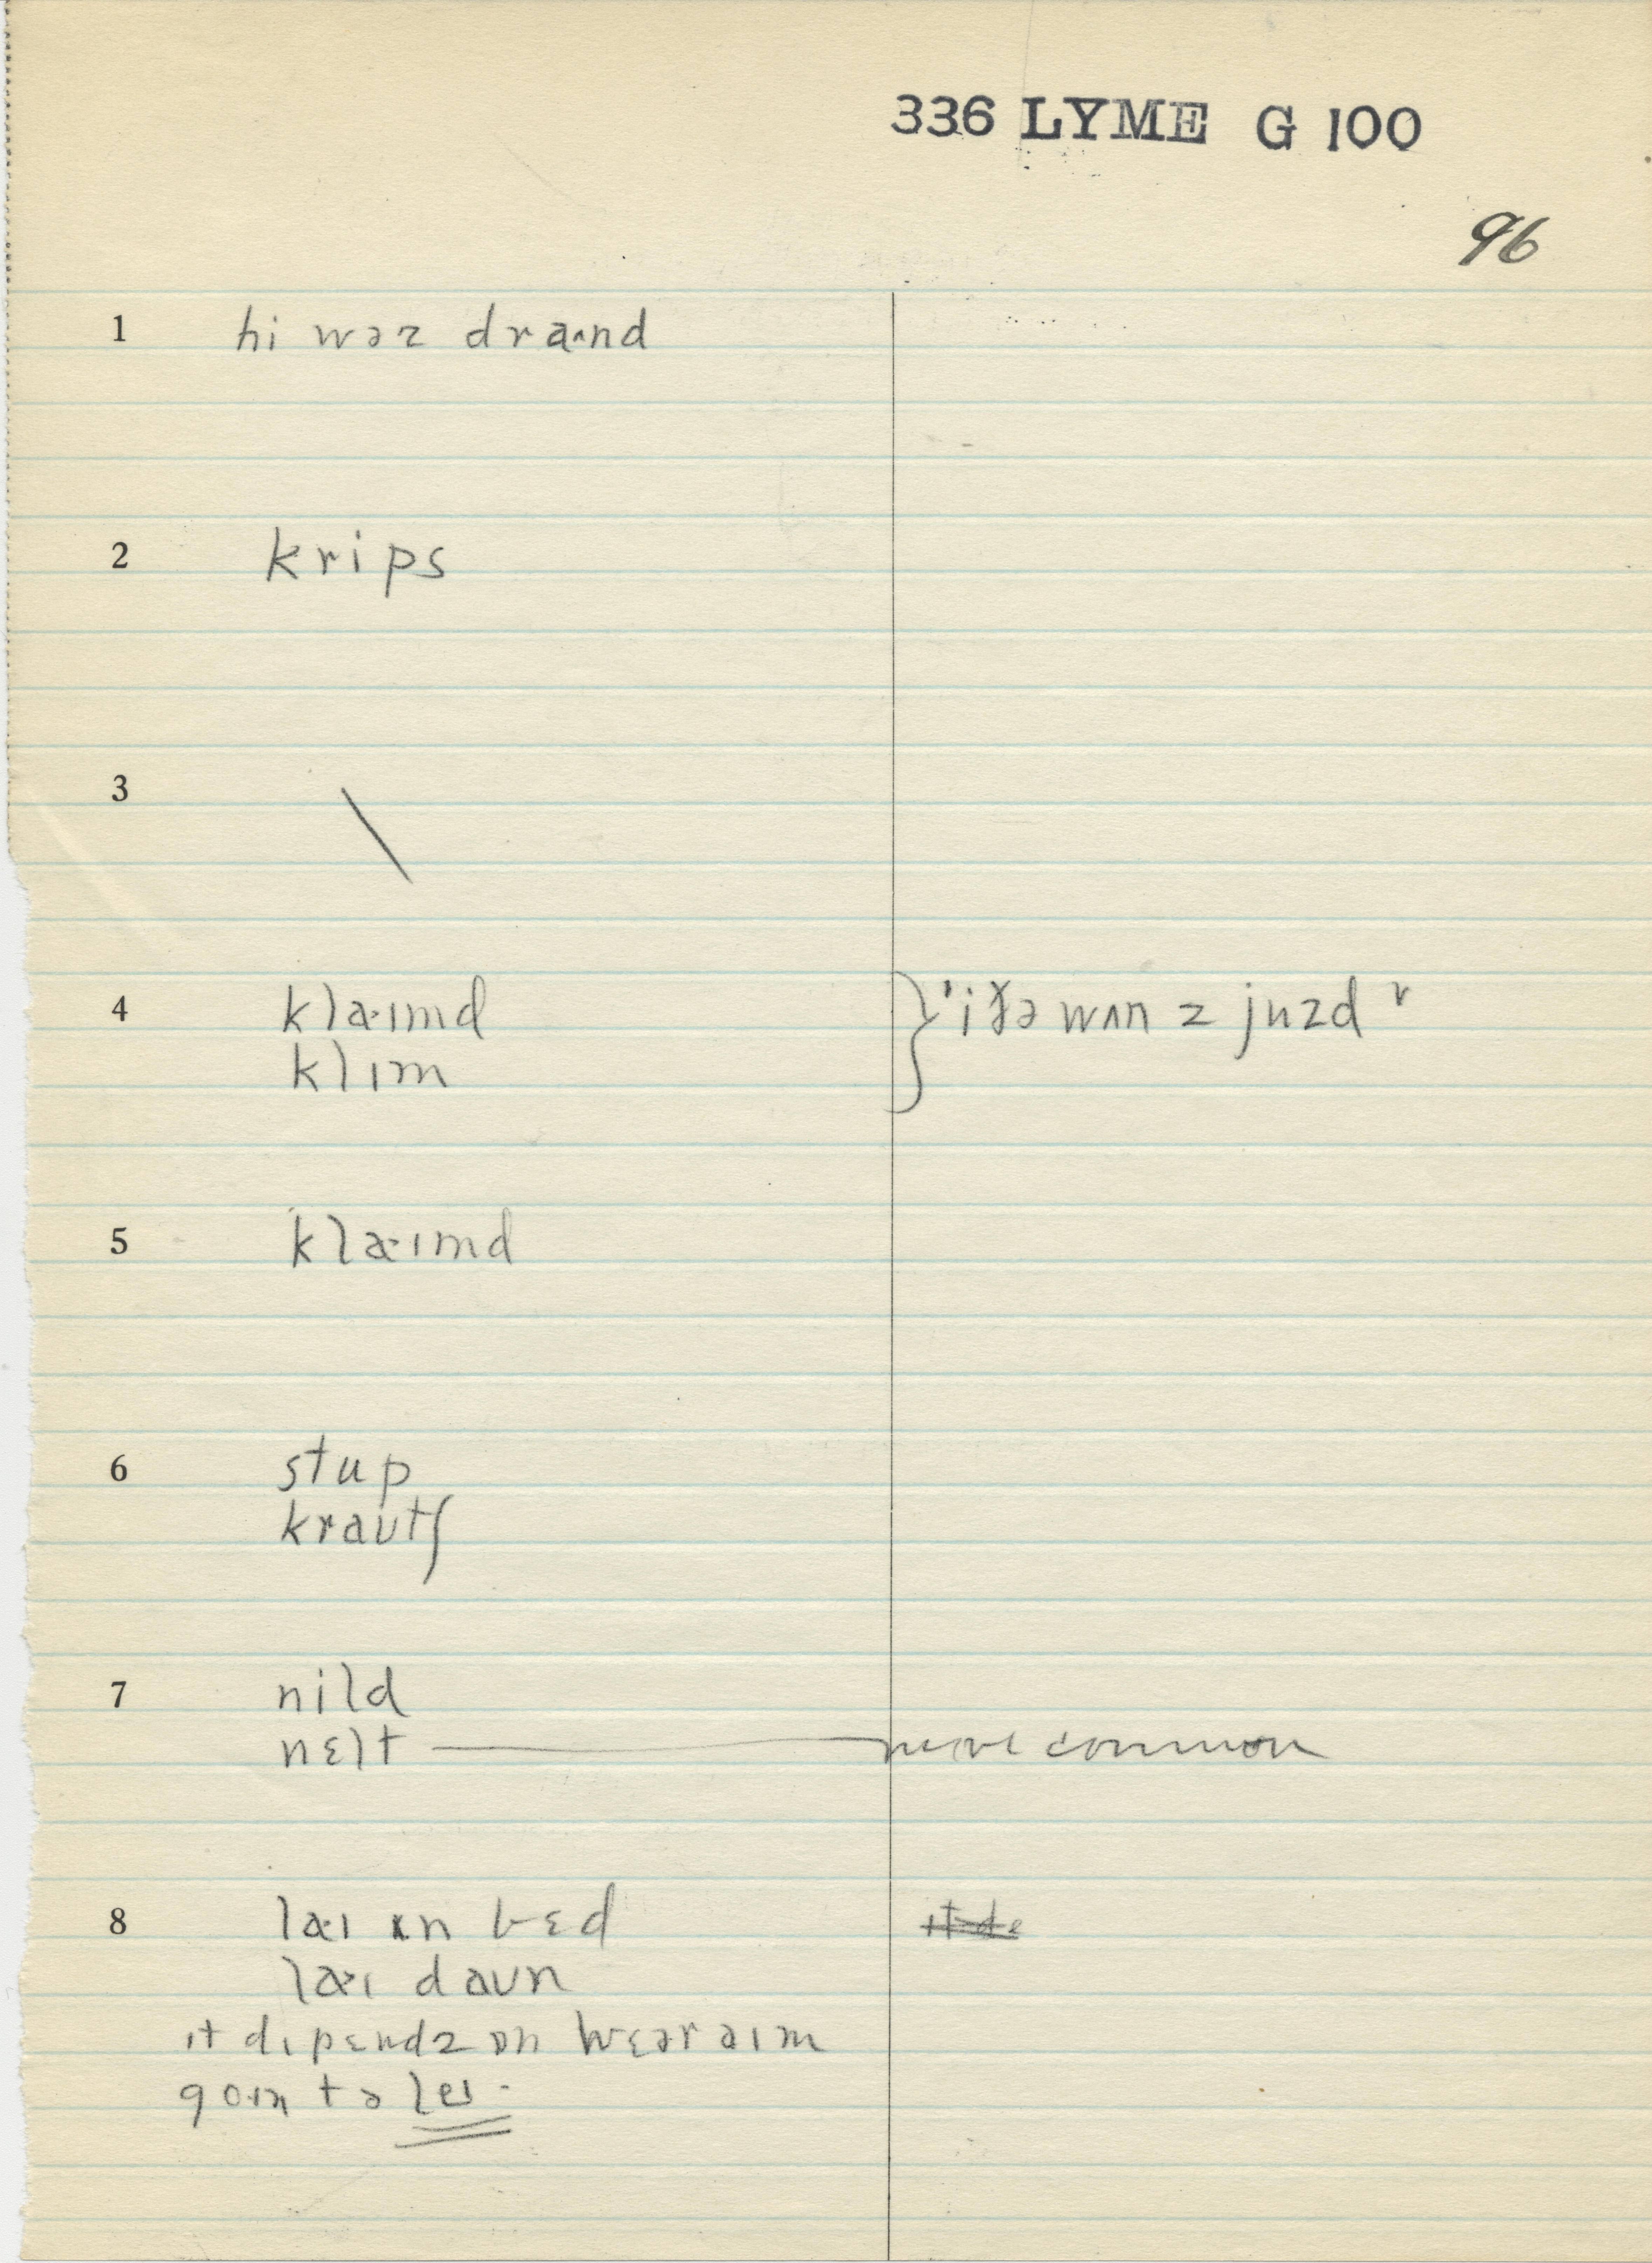 336 LYME G 100
96
1 hi wəz dra^nd
2 krips
3 \
4 kla·ımd } 'i ðə wʌn z juzd '
klım
5 kla·ımd
6 stup
kraʊtʃ
7 nild
nɛlt — more common
8 la·ı ın bɛd
la·ı daʊn
ıt dıpɛndz ɒn hwɛər aım
goın tə leı·